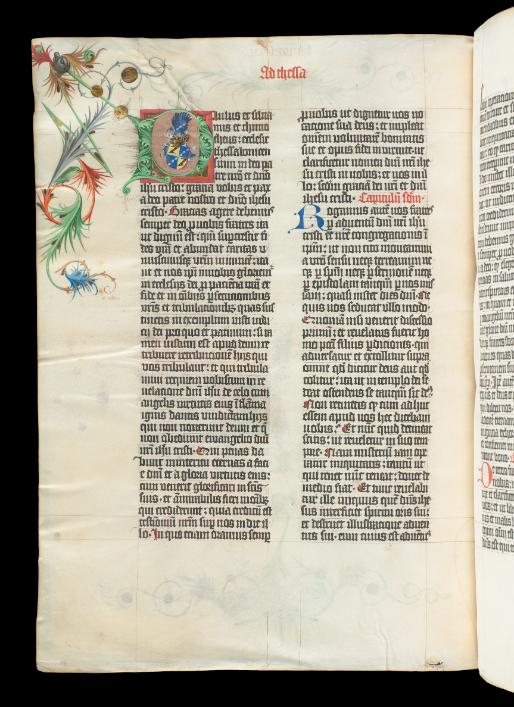 Ad thessa
Paulus et silua
nus et thimo
theus: ecclesie
thessalonicen
sium in deo pa
tre nr̄o et dn̄o
ihū cristo: gracia vobis et pax
a deo patre nostro et dn̄o ihesu
cristo. Gracias agere debemus
semper deo pro vobis fratres ita
ut dignū est: qm̄ supercrescit fi
des vr̄a et abundat caritas v
niuscuiusqꝫ vr̄m in inuicē: ita
ut et nos ip̄i in vobis gloriem̄
in ecclesijs dei pro paciencia vr̄a et
fide et in om̄ibus persecucionibus
vr̄is et tribulacionibꝫ quas sus
tinetis in exemplum iusti iudi
cij dei pro quo et patimini: si ta
men iustum est apud deum re
tribuere retribucionē hijs qui
vos tribulant: et qui tribula
mini requiem nobiscum in re
uelacione dn̄i ihū de celo cum
angelis virtutis eius ī flāma
ignis dantis vindictam hijs
qui non nouerunt deum et qui
non obediunt euangelio dn̄i
nr̄i ihū cristi. Qui penas da
bunt in interitu eternas a faci
e dn̄i et a gloria virtutis eius:
cum venerit glorificari in sc̄is
suis. et admirabilis fieri in om̄ibꝫ
qui crediderunt: quia creditū est
testimoniū nr̄m sup̄ vos in die il
lo. In quo etiam oramus semp̄
pro vobis ut dignetur vos vo
cacione sua deus: et impleat
omnem voluntatem bonitatis
sue et opus fidei in virtute: ut
clarificetur nomen dn̄i nr̄i ihe
su cristi in vobis: et vos in il
lo: scd̄m graciā dei nr̄i et dn̄i
ihesu cristi. Capitulū scd̄m.
Rogamus autē vos fratres
per aduentū dn̄i nr̄i ihū
cristi et nr̄e congregacionis ī
ip̄um: ut non cito moueamini
a vr̄o sensu neqꝫ terreamini ne
qꝫ per sp̄m neqꝫ per sermonē neqꝫ
per epistolam tanquam per nos mis
sam: quasi instet dies dn̄i. Ne
quis vos seducat ullo modo.
Quoniā nisi venerit discessio
primū: et reuelatus fuerit ho
mo peccati filius perdicionis: qui
aduersatur et extollitur supra
omne qd̄ dicitur deus aut qd̄
colitur: ita ut in templo dei se
deat ostendens se tanquam sit deꝰ.
Non retinetis quod cum adhuc
essem apud vos hec dicebam
vobis. Et nunc quid detineat
scitis: ut reueletur in suo tem
pore. Nam misteriū iam ope
ratur iniquitatis: tantū ut
qui tenet nūc teneat: donec de
medio fiat. Et tunc reuelabi
tur ille iniquus quē dn̄s ihe
sus interficiet spiritu oris sui:
et destruet illustracione aduen
tus sui. eum cuius est aduentꝰ